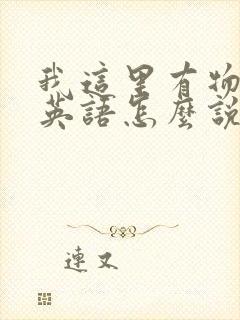 我這里有物
英語怎麼說
連又